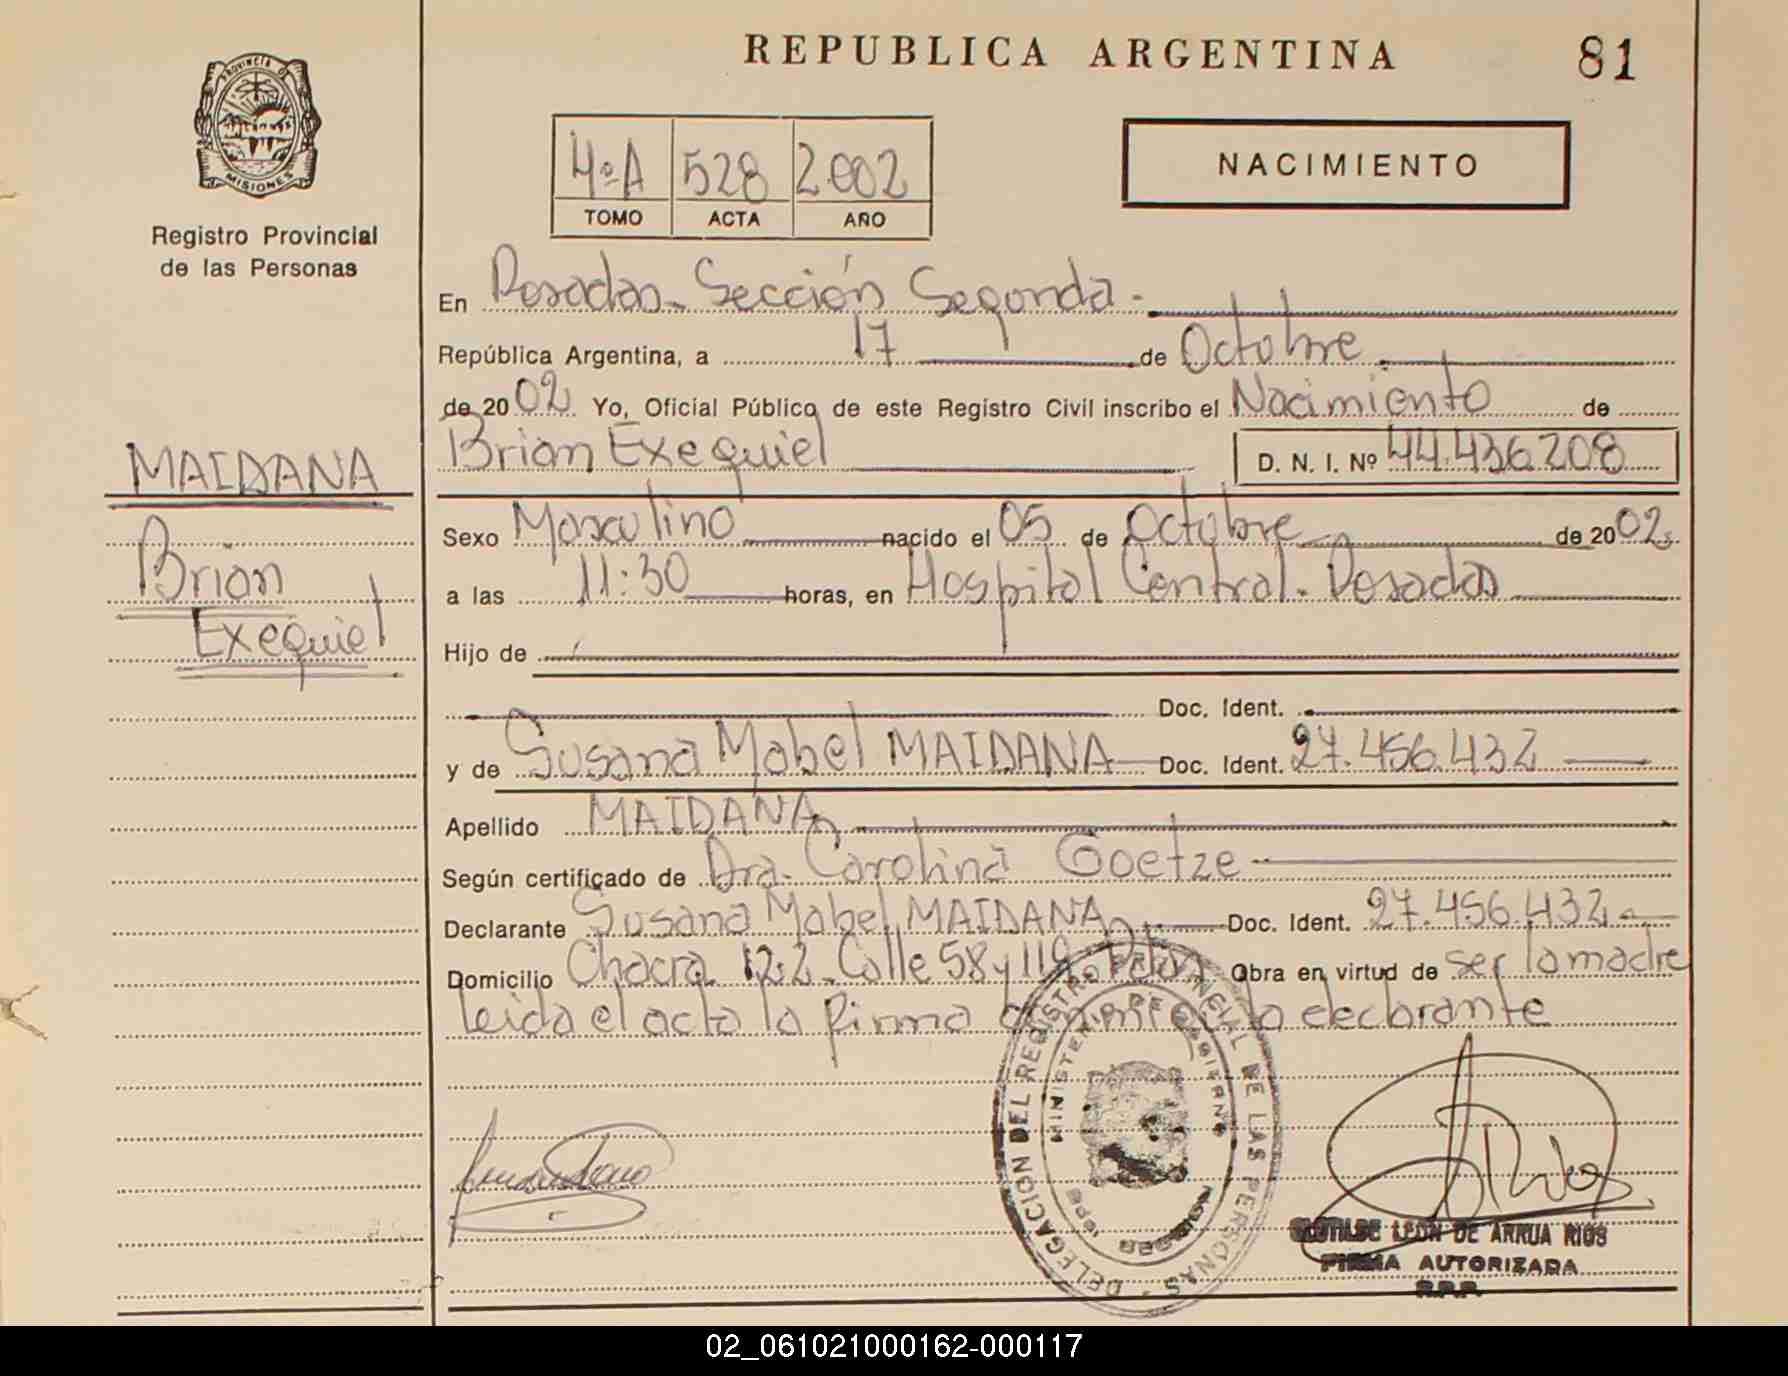 REPUBLICA ARGENTINA
81
PROVINCIA DE
MISIONES
Registro Provincial
de las Personas
4ºA 528 2.002
TOMO ACTA AÑO
NACIMIENTO
En Posadas - Sección Segunda -
República Argentina, a 17 de Octubre
de 2002 Yo, Oficial Público de este Registro Civil inscribo el Nacimiento de
Brian Exequiel D. N. I. Nº 44.436.208
MAIDANA
Brian
Exequiel
Sexo Masculino nacido el 05 de Octubre de 2002
a las 11:30 horas, en Hospital Central - Posadas
Hijo de
Doc. Ident.
y de Susana Mabel MAIDANA Doc. Ident. 27.456.432
Apellido MAIDANA
Según certificado de Dra. Carolina Goetze
Declarante Susana Mabel MAIDANA Doc. Ident. 27.456.432
Domicilio Chacra 122 - Calle 58 y 119 Obra en virtud de ser la madre
Leida el acta la firma la declarante
DELEGACION DEL REGISTRO PROVINCIAL DE LAS PERSONAS
MINISTERIO DE GOBIERNO
CLOTILDE LEON DE ARRUA RIOS
FIRMA AUTORIZADA
R.P.P.
02_061021000162-000117